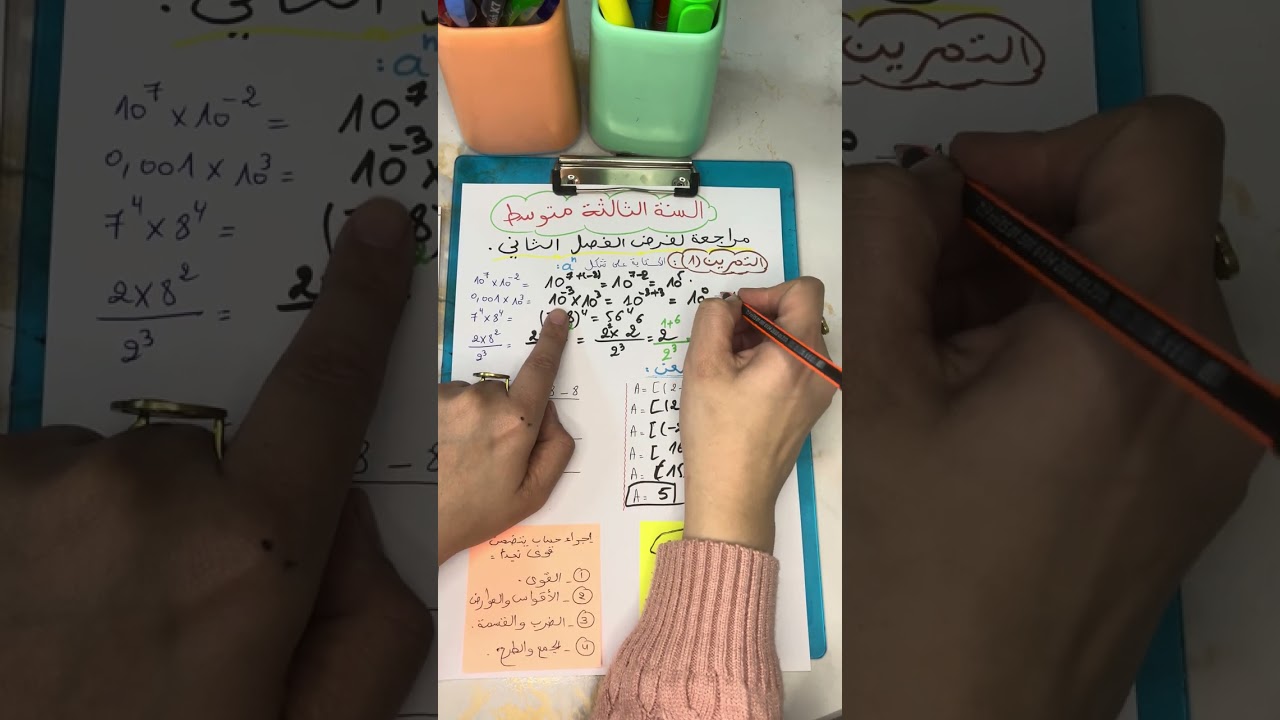 السنة الثالثة متوسط
مراجعة لفرض الفصل الثاني.
التمرين (1): الكتابة على شكل aⁿ:
10⁷ × 10⁻² = 10⁷⁺⁽⁻²⁾ = 10⁷⁻² = 10⁵.
0,001 × 10³ = 10⁻³ × 10³ = 10⁻³⁺³ = 10⁰
7⁴ × 8⁴ = 8)⁴ = 56⁴
2×8²/2³ = 2 = 2×2⁶/2³ = 2¹⁺⁶/2³
8 - 8
A = [(2-
A = [(2
A = [(-2
A = [ 16
A = (15
A = 5
لإجراء حساب يتضمن
قوى
① - القوى.
② - الأقواس والعوارض
③ - الضرب والقسمة.
④ - الجمع والطرح.